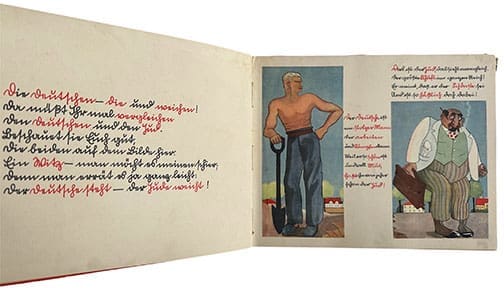 Die Deutschen – die und weichen!
Da müßt Ihr mal vergleichen
Den Deutschen und den Jud.
Beschaut sie Euch gut,
Die beiden auf dem Bilde hier.
Ein Witz – man möcht es meinen schier;
Denn man errät es ja ganz leicht:
Der Deutsche steht – der Jude weicht!
Der Deutsche ist
ein stolzer Mann
der arbeiten
und kämpfen kann.
Weil er so schön ist
und voll Mut,
Haßt ihn von jeher
schon der Jud!
Dies ist der Jud, das sieht man gleich,
Der größte Schuft im ganzen Reich!
Er meint, daß er der Schönste sei
Und ist so häßlich doch dabei!